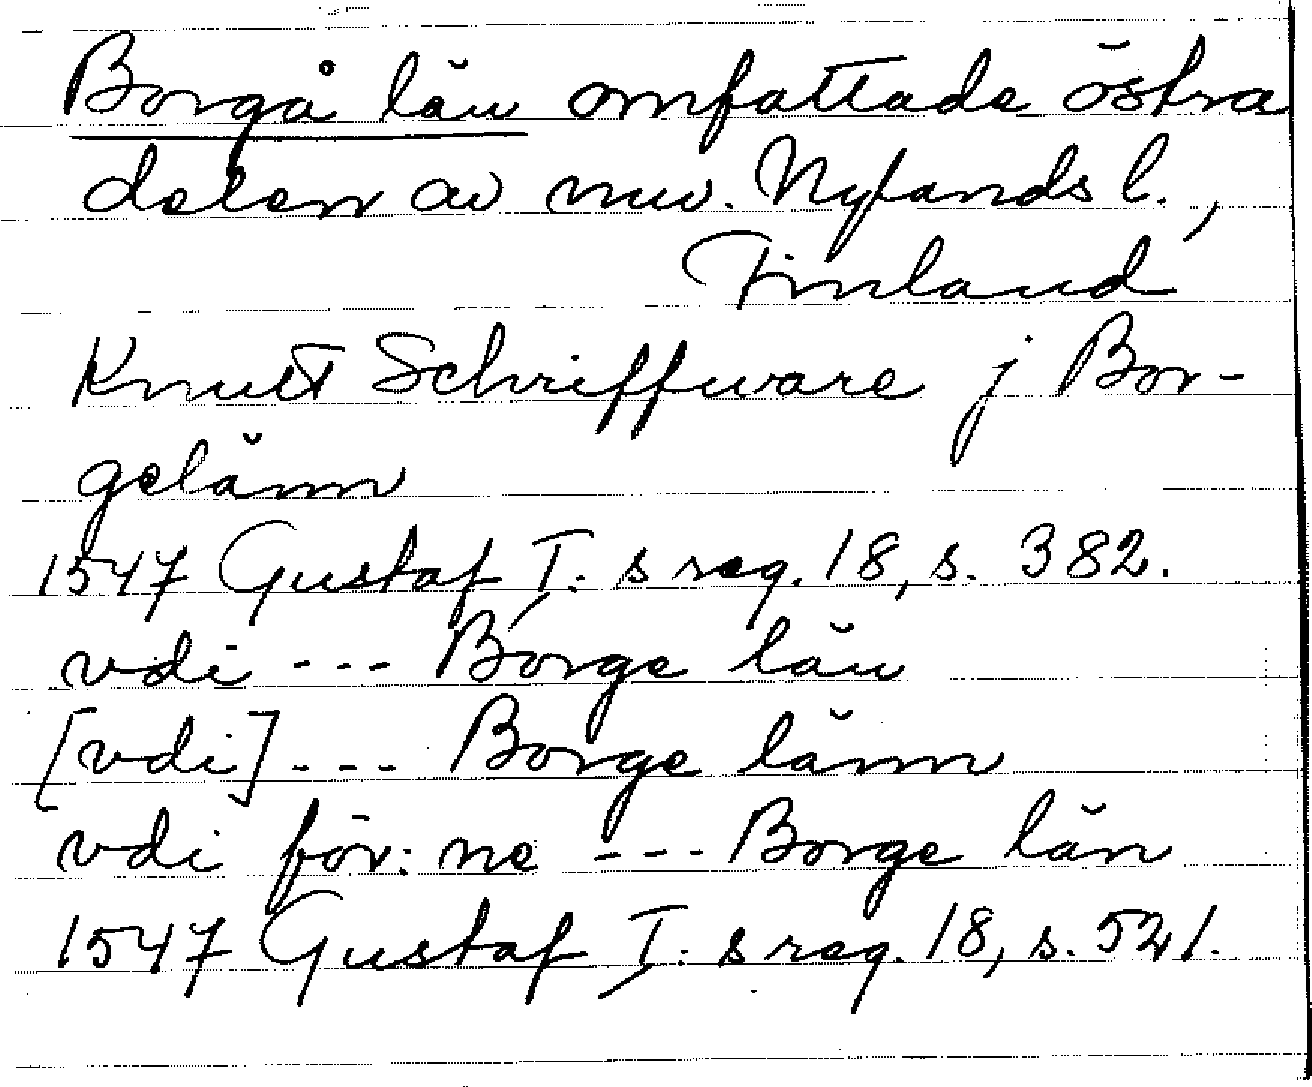 Borgå län omfattade östra
delen av nuv. Nylands l.,
Finland
Knutt Schriffware j Bor-
gelänn
1547 Gustaf I:s reg. 18, s. 382.
vdi --- Borge län
[vdi] --- Borge länn
vdi för:ne --- Borge län
1547 Gustaf I:s reg. 18, s. 521.